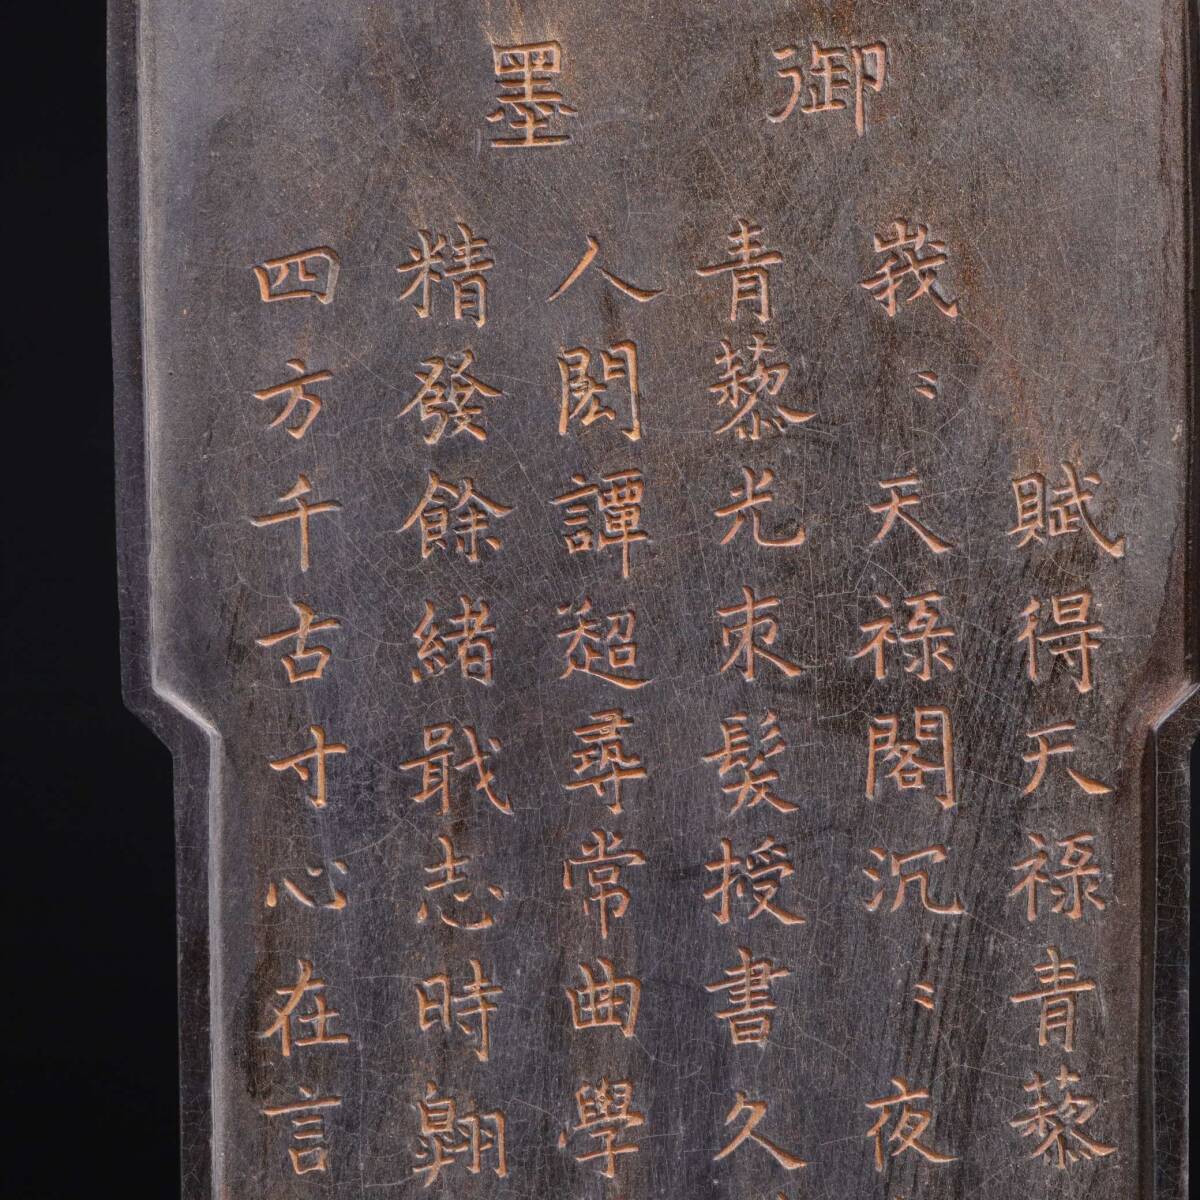 御墨
賦得天祿青藜
峩〻天祿閣沉〻夜
青藜光朿髮授書久
人閎譚超尋常曲學
精發餘緒戢志時翺
四方千古寸心在言